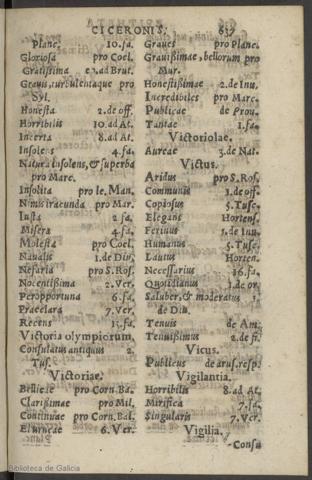 CICERONIS. 637
Plane 10. fa.
Gloriosa pro Coel.
Gratissima ep. ad Brut.
Grauis, turbulentaque pro
Syl.
Honesta 2. de off.
Horribilis 10. ad At.
Incerta 8. ad At.
Insolens 4. fa.
Natura insolens, & superba
pro Marc.
Insolita pro le. Man.
Nimis iracunda pro Mar.
Iusta 2. fa.
Misera 4. fa.
Molesta pro Coel.
Naualis 1. de Diu.
Nefaria pro S. Ros.
Nocentissima 2. Ver.
Peropportuna 6. fa.
Praeclara 7. Ver.
Recens 13. fa.
Victoria olympiorum.
Consulatus antiquus 2.
Tus.
Victoriae.
Bellicae pro Corn. Ba.
Clarissimae pro Mil.
Continuae pro Corn. Bal.
Eburneae 6. Ver.
Graues pro Planc.
Grauissimae, bellorum pro
Mur.
Honestissimae 2. de Inu.
Incredibiles pro Marc.
Publicae de Prou.
Tantae 1. fa.
Victoriolae.
Aureae 3. de Nat.
Victus.
Aridus pro S. Ros.
Communis 1. de off.
Copiosus 5. Tusc.
Elegans Hortens.
Ferinus 1. de Inu.
Humanus 5. Tusc.
Lautus Horten.
Necessarius 16. fa.
Quotidianus 1. de or.
Saluber, & moderatus 1.
de Diu.
Tenuis de Am.
Tenuissimus 2. de fi.
Vicus.
Publicus de arus. resp.
Vigilantia.
Horribilis 8. ad At.
Mirifica 7. fa.
Singularis 7. Ver.
Vigilia.
Consu
Biblioteca de Galicia